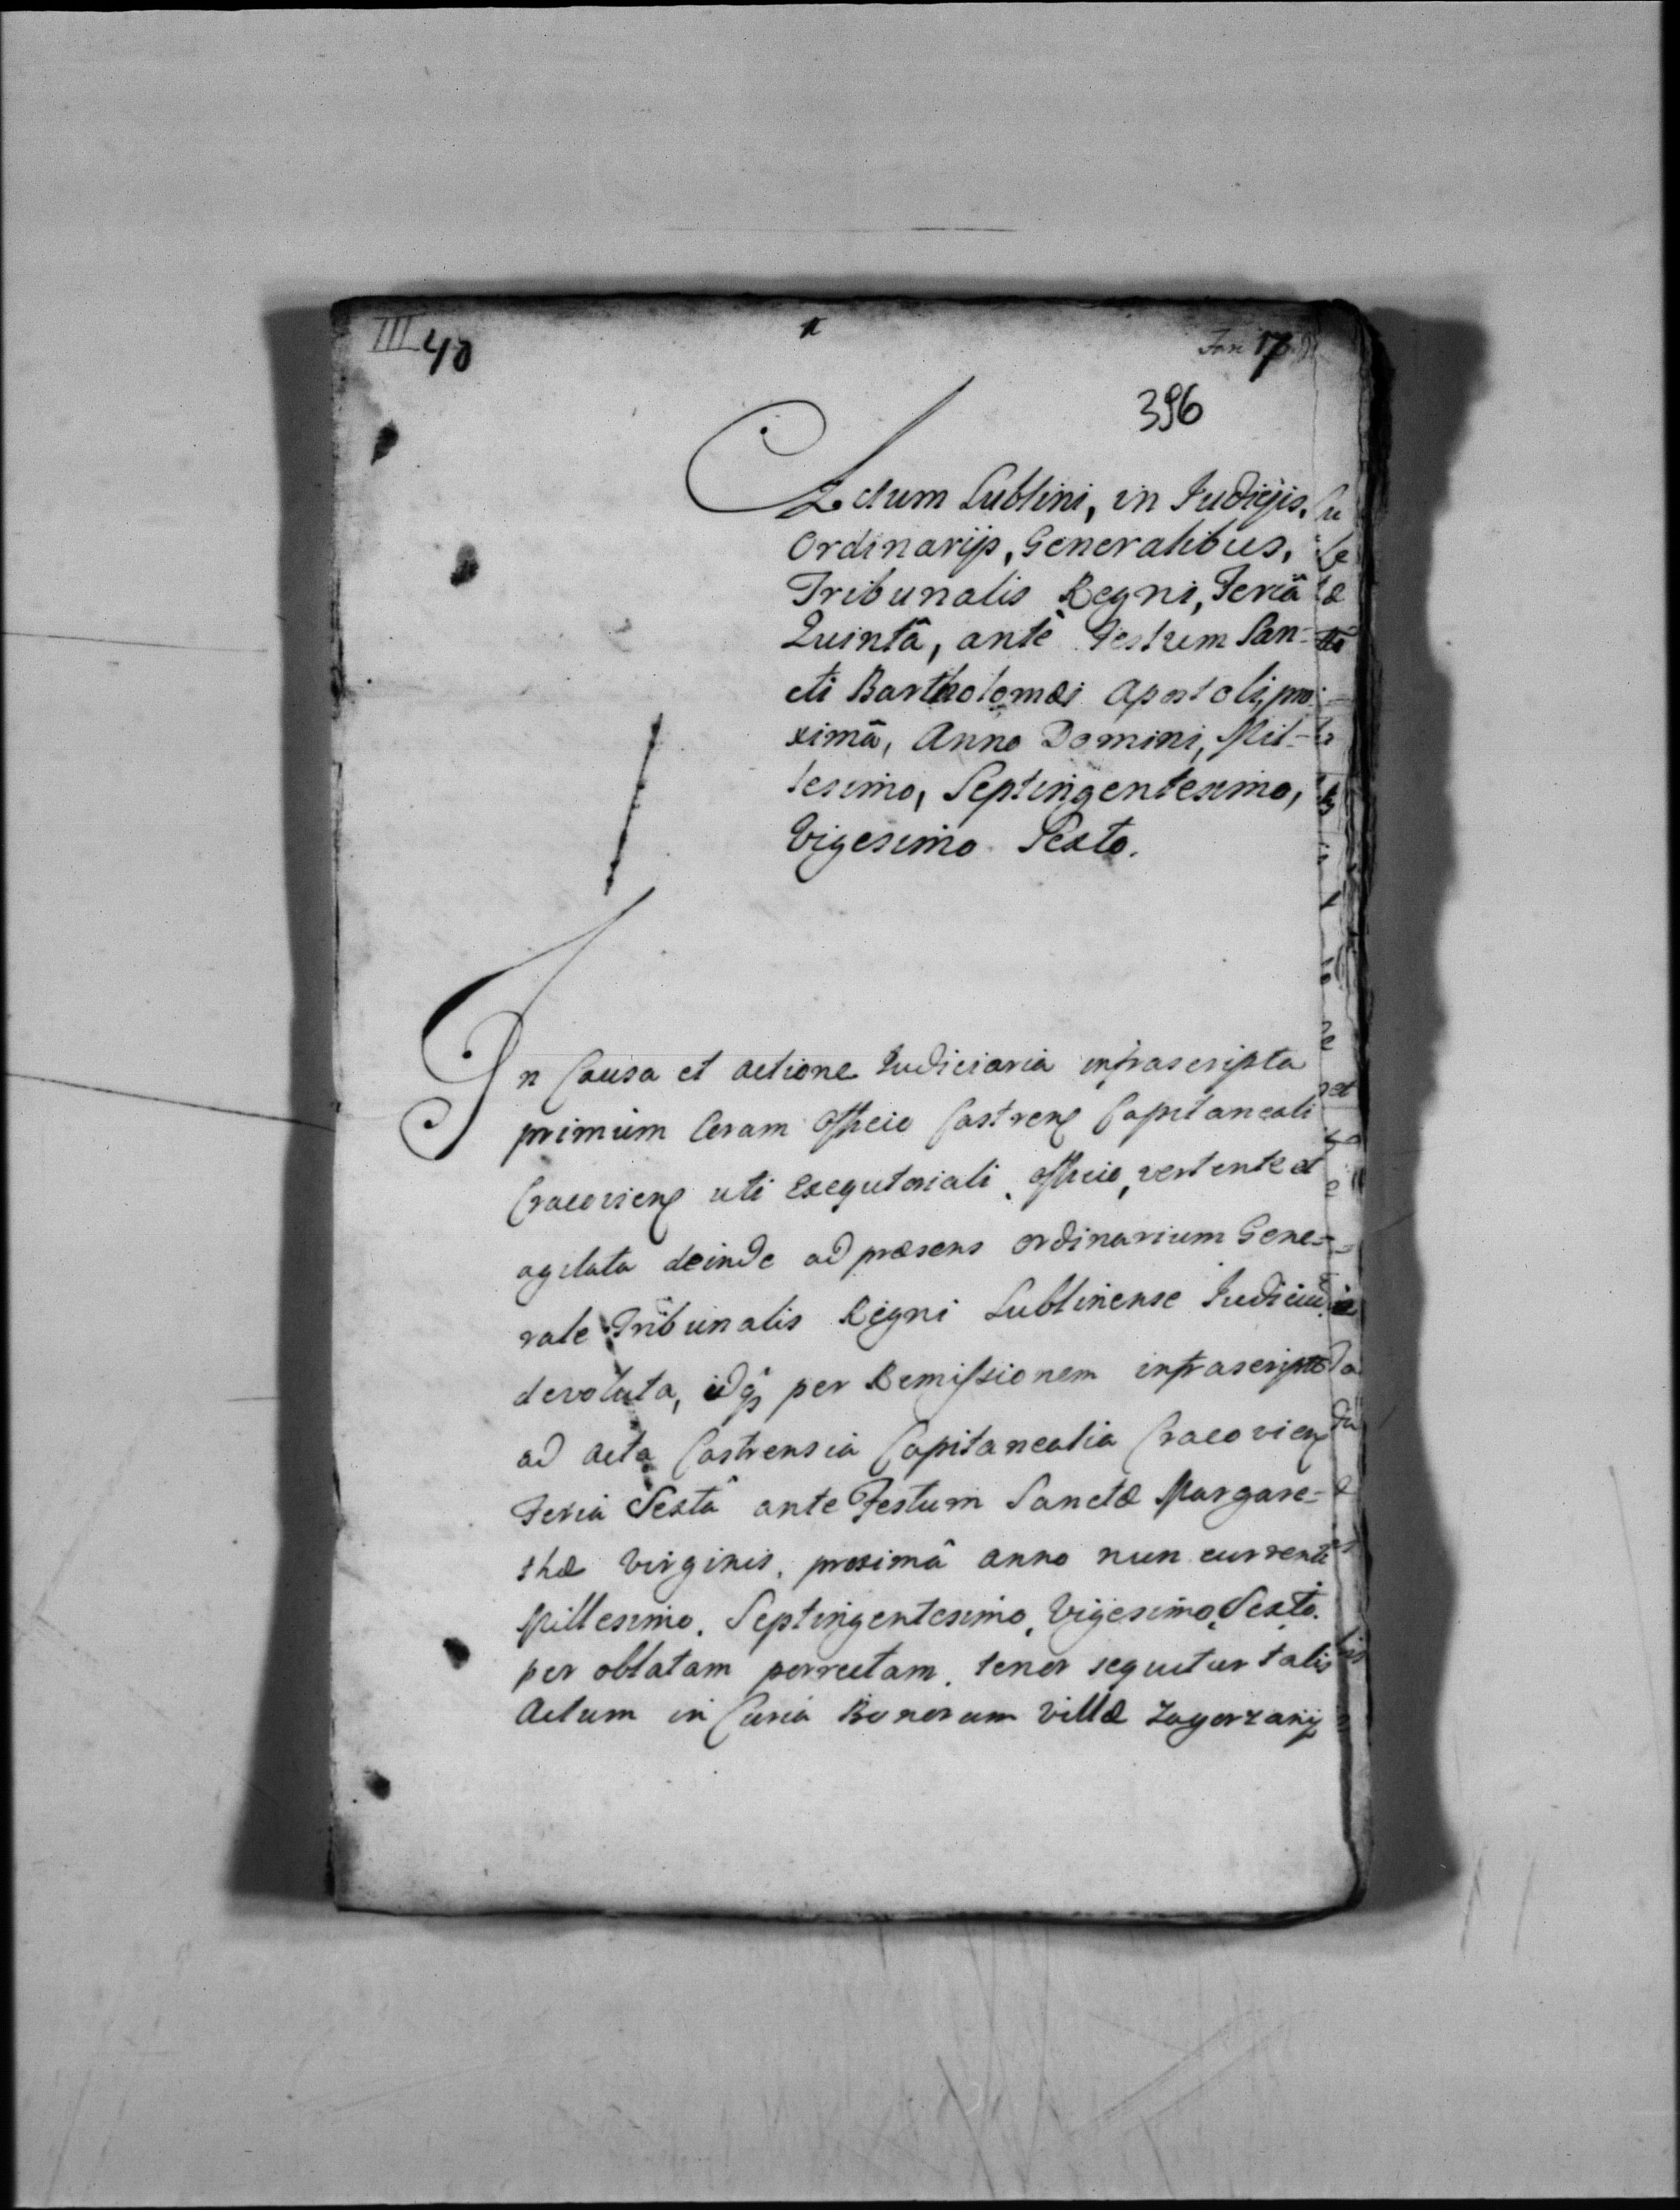 III 40
17
396
Actum Lublini, in Judicijs,
Ordinarijs, Generalibus,
Tribunalis Regni, Feriâ
Quintâ, antè Festum San=
cti Bartholomæi Apostoli, pro=
ximâ, Anno Domini, Mil=
lesimo, Septingentesimo,
Vigesimo Sexto.
In Causa et Actione Judiciaria infrascripta
primùm Coram Officio Castren Capitaneali
Cracovien uti Exequtoriali, Officio, vertente et
agitata deinde ad præsens Ordinarium Gene=
rale Tribunalis Regni Lublinense Judiciũ
devoluta, idq per Remissionem infrascriptã
ad Acta Castrensia Capitanealia Cracovien
Feria Sextâ ante Festum Sanctæ Margare=
thæ Virginis, proximâ anno nun currente
Millesimo, Septingentesimo, Vigesimo, Sexto.
per oblatam porrectam, tenor sequitur talis
Actum in Curia Bonorum Villæ Zagorzany